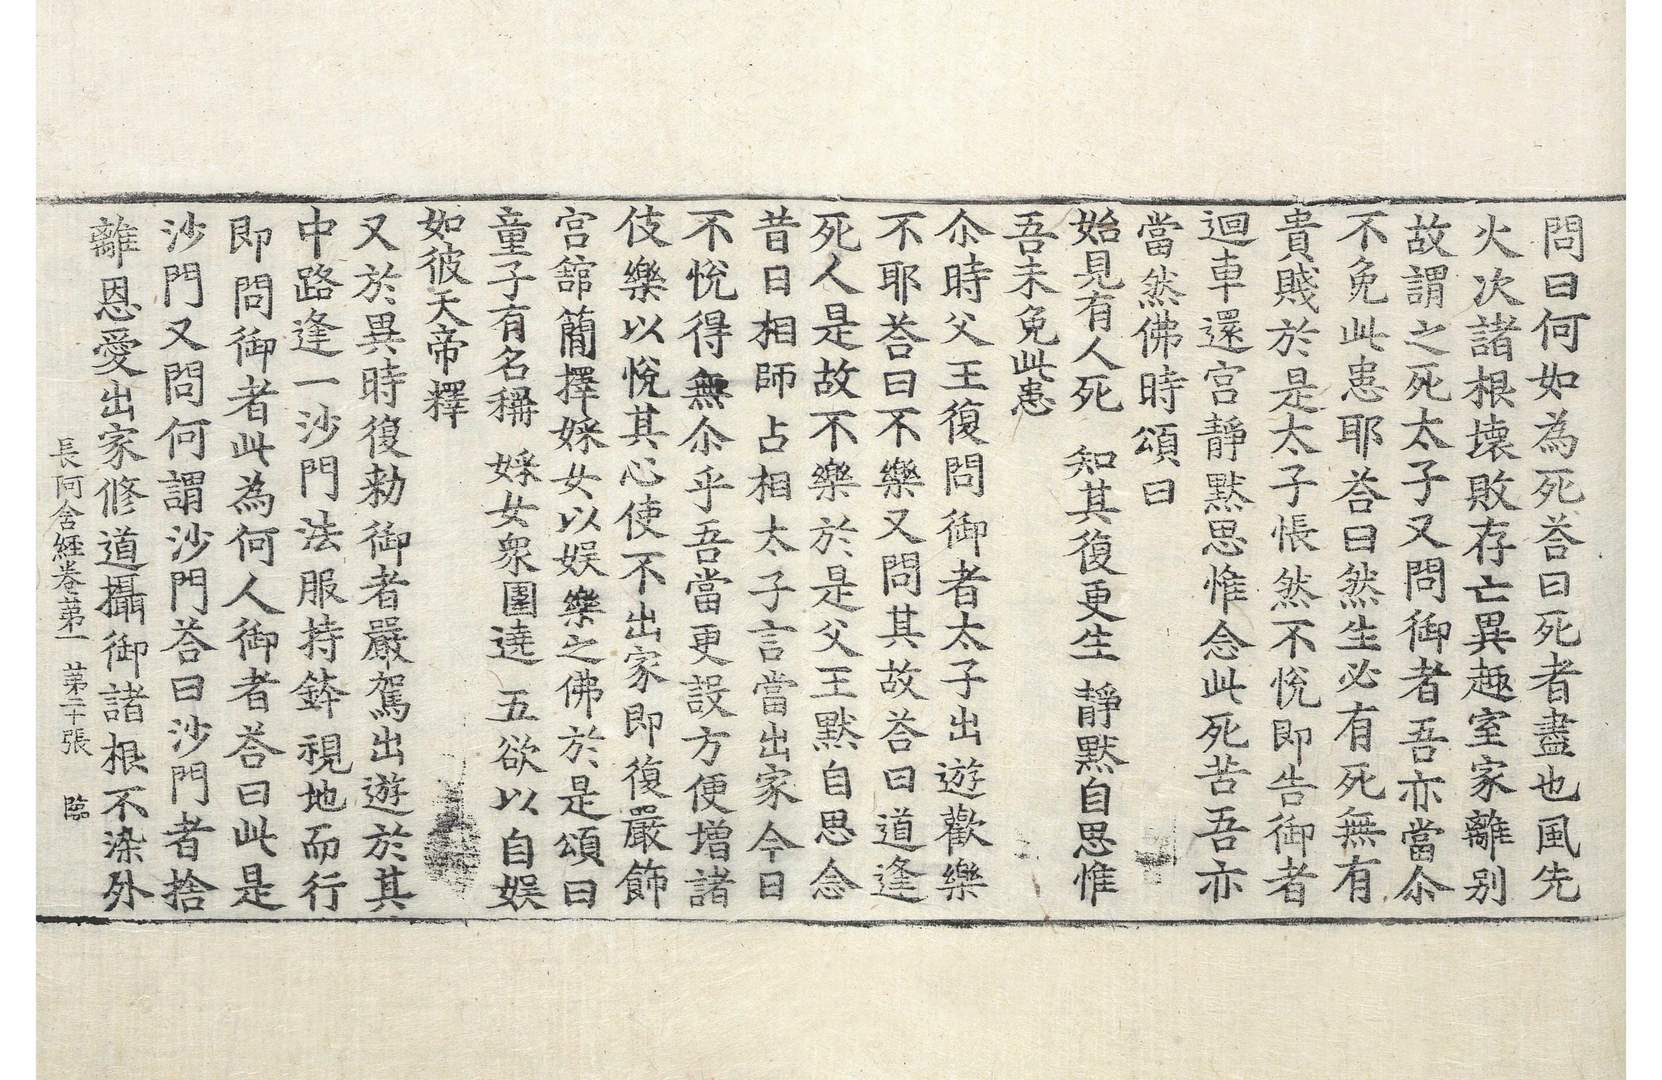 問曰何如為死荅曰死者盡也風先
火次諸根壊敗存亡異趣室家離別
故謂之死太子又問御者吾亦當尒
不免此患耶荅曰然生必有死無有
貴賤於是太子悵然不悅即告御者
迴車還宮靜默思惟念此死苦吾亦
當然佛時頌曰
始見有人死　知其復更生　靜默自思惟
吾未免此患
尒時父王復問御者太子出遊歡樂
不耶荅曰不樂又問其故荅曰道逢
死人是故不樂於是父王默自思念
昔日相師占相太子言當出家今日
不悅得無尒乎吾當更設方便增諸
伎樂以悅其心使不出家即復嚴飾
宮舘蕳擇婇女以娛樂之佛於是頌曰
童子有名稱　婇女衆圍遶　五欲以自娛
如彼天帝釋
又於異時復勑御者嚴駕出遊於其
中路逢一沙門法服持鉢視地而行
即問御者此為何人御者荅曰此是
沙門又問何謂沙門荅曰沙門者捨
離恩愛出家修道攝御諸根不染外
長阿含經卷苐一　苐二十張　臨